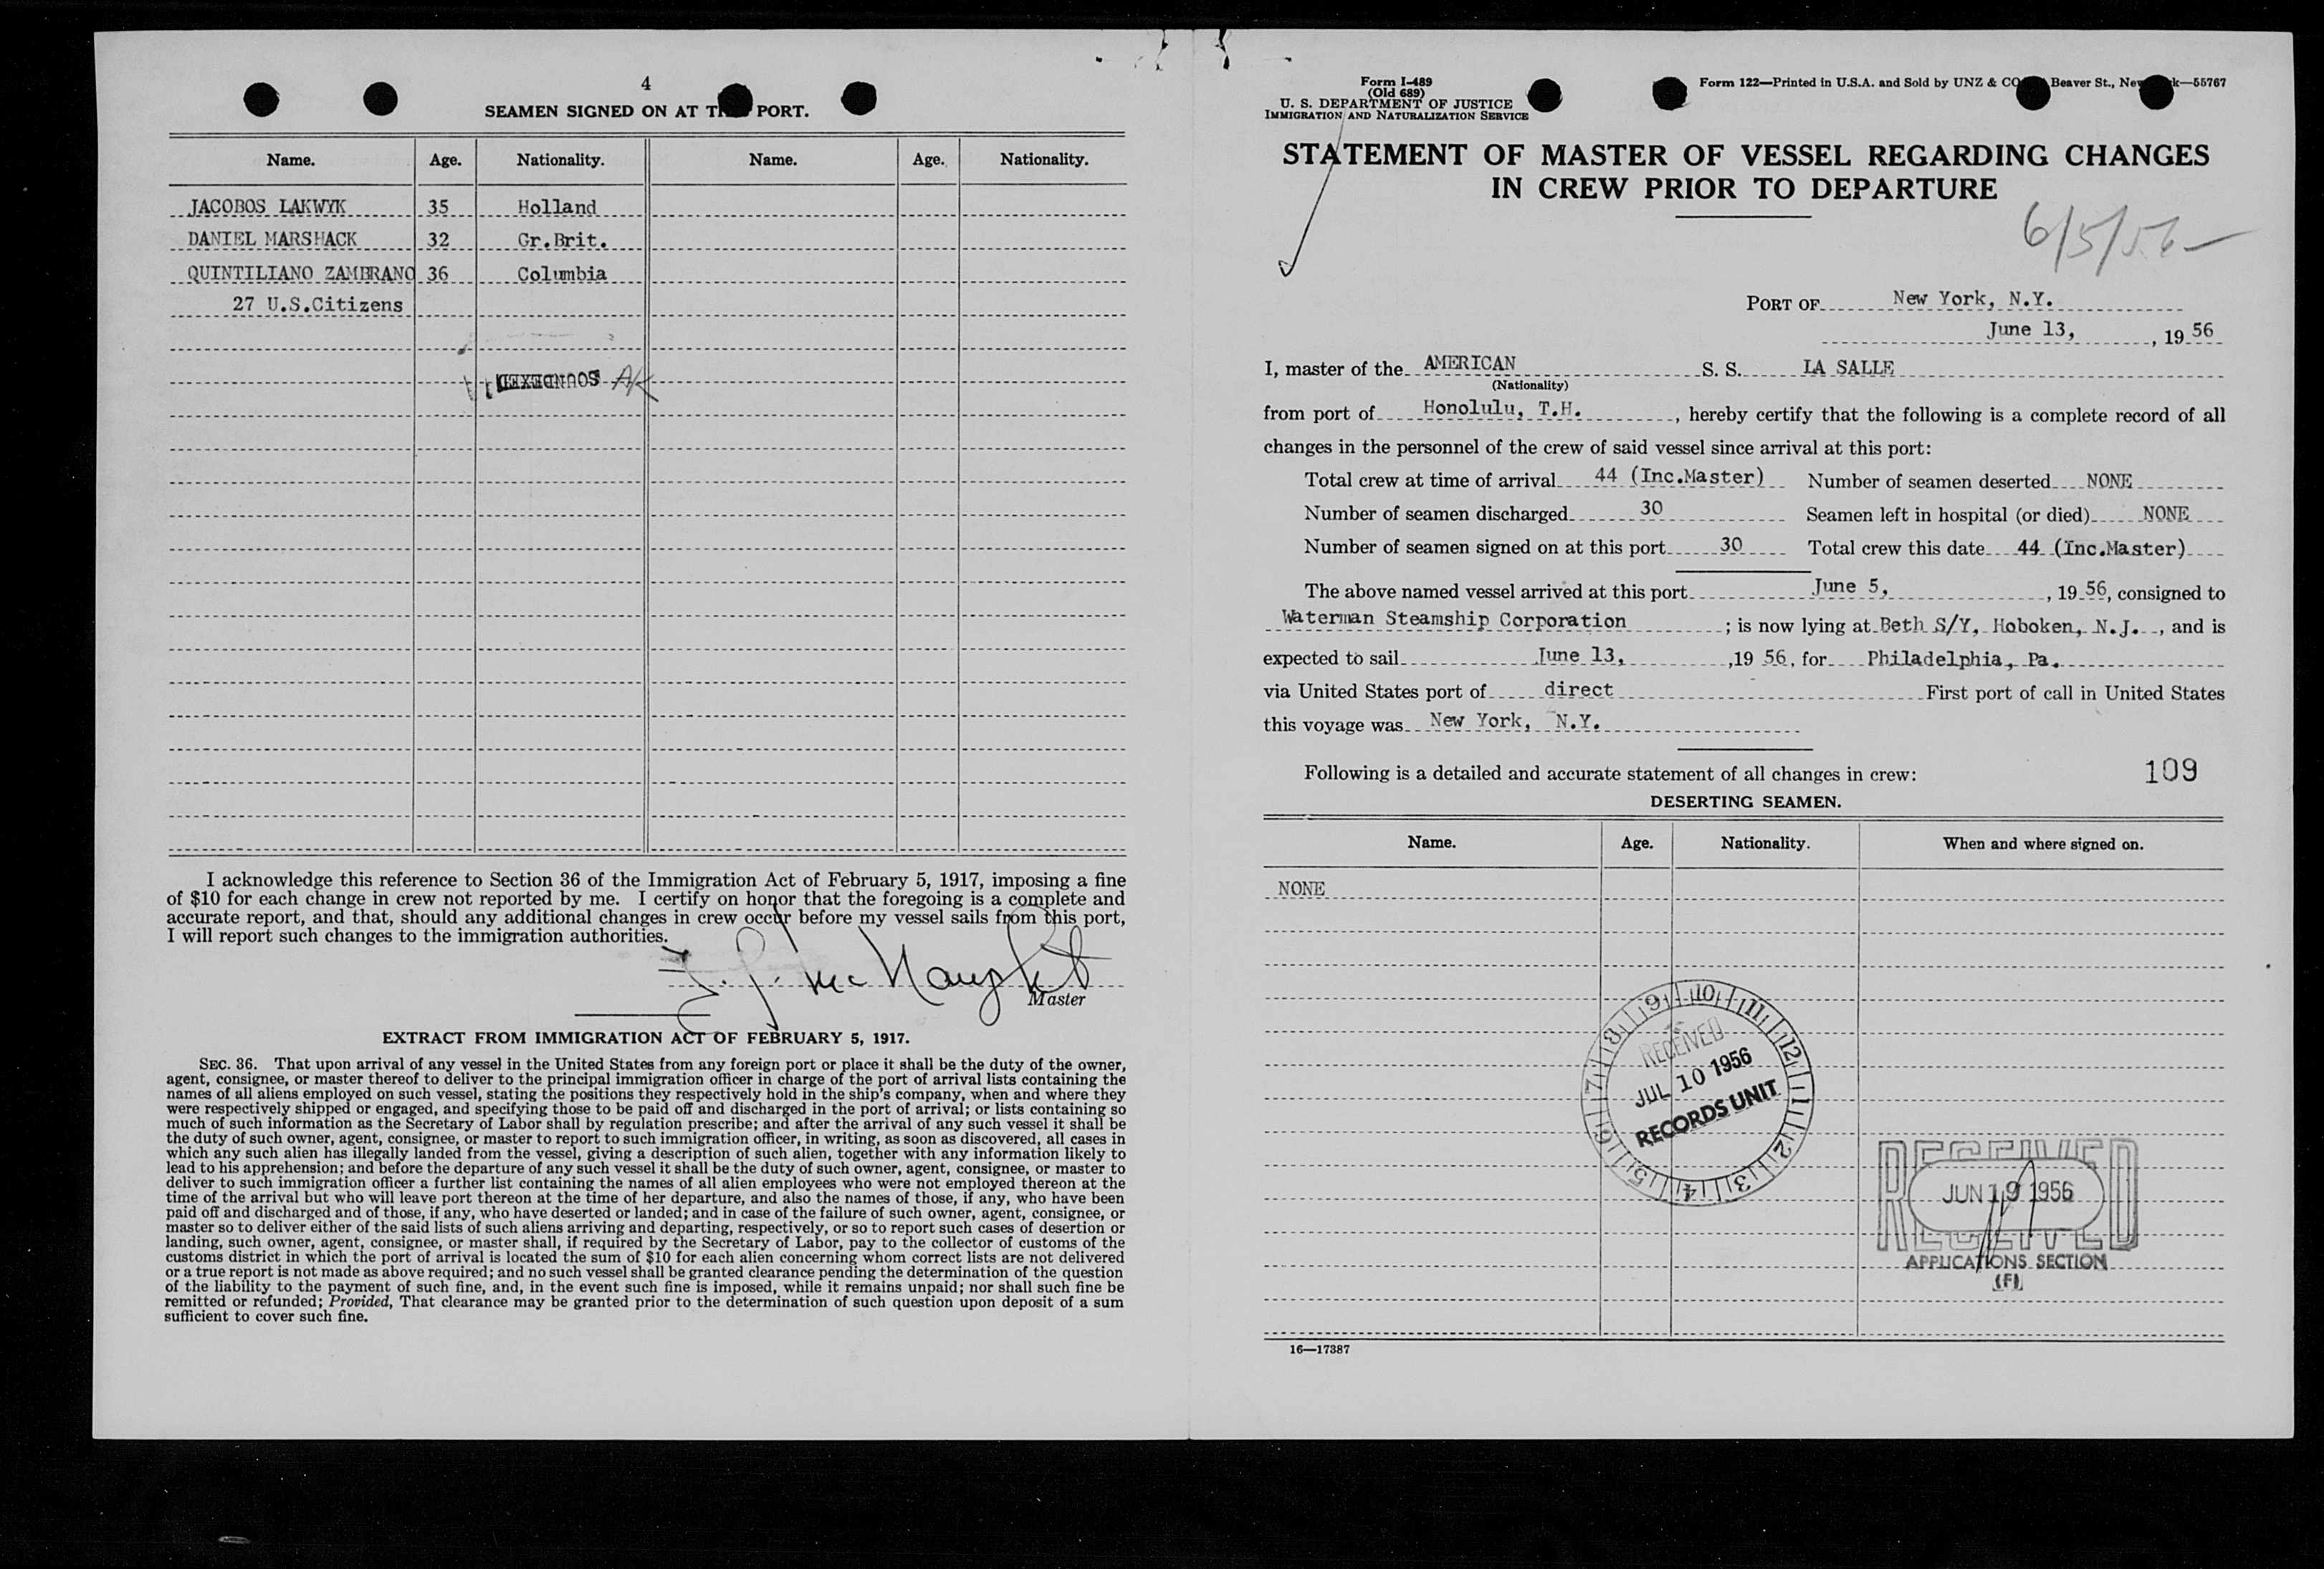 4
SEAMEN SIGNED ON AT PORT.
Name. Age. Nationality. Name. Age. Nationality.
JACOBOS LAKWYK 35 Holland
DANIEL MARSHACK 32 Gr.Brit.
QUINTILIANO ZAMBRANO 36 Columbia
27 U.S.Citizens
SOUNDEXED AK
I acknowledge this reference to Section 36 of the Immigration Act of February 5, 1917, imposing a fine
of $10 for each change in crew not reported by me. I certify on honor that the foregoing is a complete and
accurate report, and that, should any additional changes in crew occur before my vessel sails from this port,
I will report such changes to the immigration authorities.
Master
EXTRACT FROM IMMIGRATION ACT OF FEBRUARY 5, 1917.
SEC. 36. That upon arrival of any vessel in the United States from any foreign port or place it shall be the duty of the owner,
agent, consignee, or master thereof to deliver to the principal immigration officer in charge of the port of arrival lists containing the
names of all aliens employed on such vessel, stating the positions they respectively hold in the ship's company, when and where they
were respectively shipped or engaged, and specifying those to be paid off and discharged in the port of arrival; or lists containing so
much of such information as the Secretary of Labor shall by regulation prescribe; and after the arrival of any such vessel it shall be
the duty of such owner, agent, consignee, or master to report to such immigration officer, in writing, as soon as discovered, all cases in
which any such alien has illegally landed from the vessel, giving a description of such alien, together with any information likely to
lead to his apprehension; and before the departure of any such vessel it shall be the duty of such owner, agent, consignee, or master to
deliver to such immigration officer a further list containing the names of all alien employees who were not employed thereon at the
time of the arrival but who will leave port thereon at the time of her departure, and also the names of those, if any, who have been
paid off and discharged and of those, if any, who have deserted or landed; and in case of the failure of such owner, agent, consignee, or
master so to deliver either of the said lists of such aliens arriving and departing, respectively, or so to report such cases of desertion or
landing, such owner, agent, consignee, or master shall, if required by the Secretary of Labor, pay to the collector of customs of the
customs district in which the port of arrival is located the sum of $10 for each alien concerning whom correct lists are not delivered
or a true report is not made as above required; and no such vessel shall be granted clearance pending the determination of the question
of the liability to the payment of such fine, and, in the event such fine is imposed, while it remains unpaid; nor shall such fine be
remitted or refunded; Provided, That clearance may be granted prior to the determination of such question upon deposit of a sum
sufficient to cover such fine.
Form I-489
(Old 689)
U. S. DEPARTMENT OF JUSTICE
IMMIGRATION AND NATURALIZATION SERVICE
Form 122—Printed in U.S.A. and Sold by UNZ & CO Beaver St., New k—55767
STATEMENT OF MASTER OF VESSEL REGARDING CHANGES
IN CREW PRIOR TO DEPARTURE
6/5/56
PORT OF New York, N.Y.
June 13, , 19 56
I, master of the AMERICAN S. S. LA SALLE
(Nationality)
from port of Honolulu, T.H. , hereby certify that the following is a complete record of all
changes in the personnel of the crew of said vessel since arrival at this port:
Total crew at time of arrival 44 (Inc.Master) Number of seamen deserted NONE
Number of seamen discharged 30 Seamen left in hospital (or died) NONE
Number of seamen signed on at this port 30 Total crew this date 44 (Inc.Master)
The above named vessel arrived at this port June 5, , 19 56, consigned to
Waterman Steamship Corporation ; is now lying at Beth S/Y, Hoboken, N.J. , and is
expected to sail June 13, ,19 56, for Philadelphia, Pa.
via United States port of direct First port of call in United States
this voyage was New York, N.Y.
Following is a detailed and accurate statement of all changes in crew: 109
DESERTING SEAMEN.
Name. Age. Nationality. When and where signed on.
NONE
9 10 11 12 1 2 3 4 5 6 7 8
RECEIVED
JUL 10 1956
RECORDS UNIT
RECEIVED
JUN 19 1956
RECEIVED
APPLICATIONS SECTION
(F)
16—17387